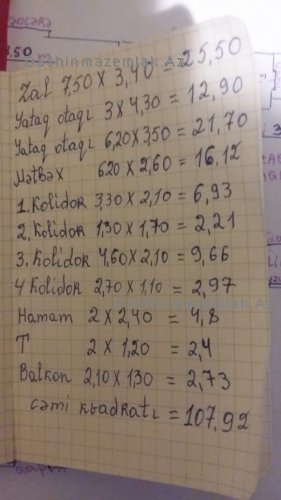 bashinmazemlak Az
Zal 7,50 X 3,40 = 25,50
Yataq otaqı 3 X 4,30 = 12,90
Yataq otaqı 6,20 X 3,50 = 21,70
Mətbəx 620 X 2,60 = 16,12
1. Kolidor 3,30 X 2,10 = 6,93
2. Kolidor 1,30 X 1,70 = 2,21
3. Kolidor 4,60 X 2,10 = 9,66
4 Kolidor 2,70 X 1,10 = 2,97
Hamam 2 X 2,40 = 4,8
T 2 X 1,20 = 2,4
Balkon 2,10 X 1,30 = 2,73
cəmi kvadratı = 107,92